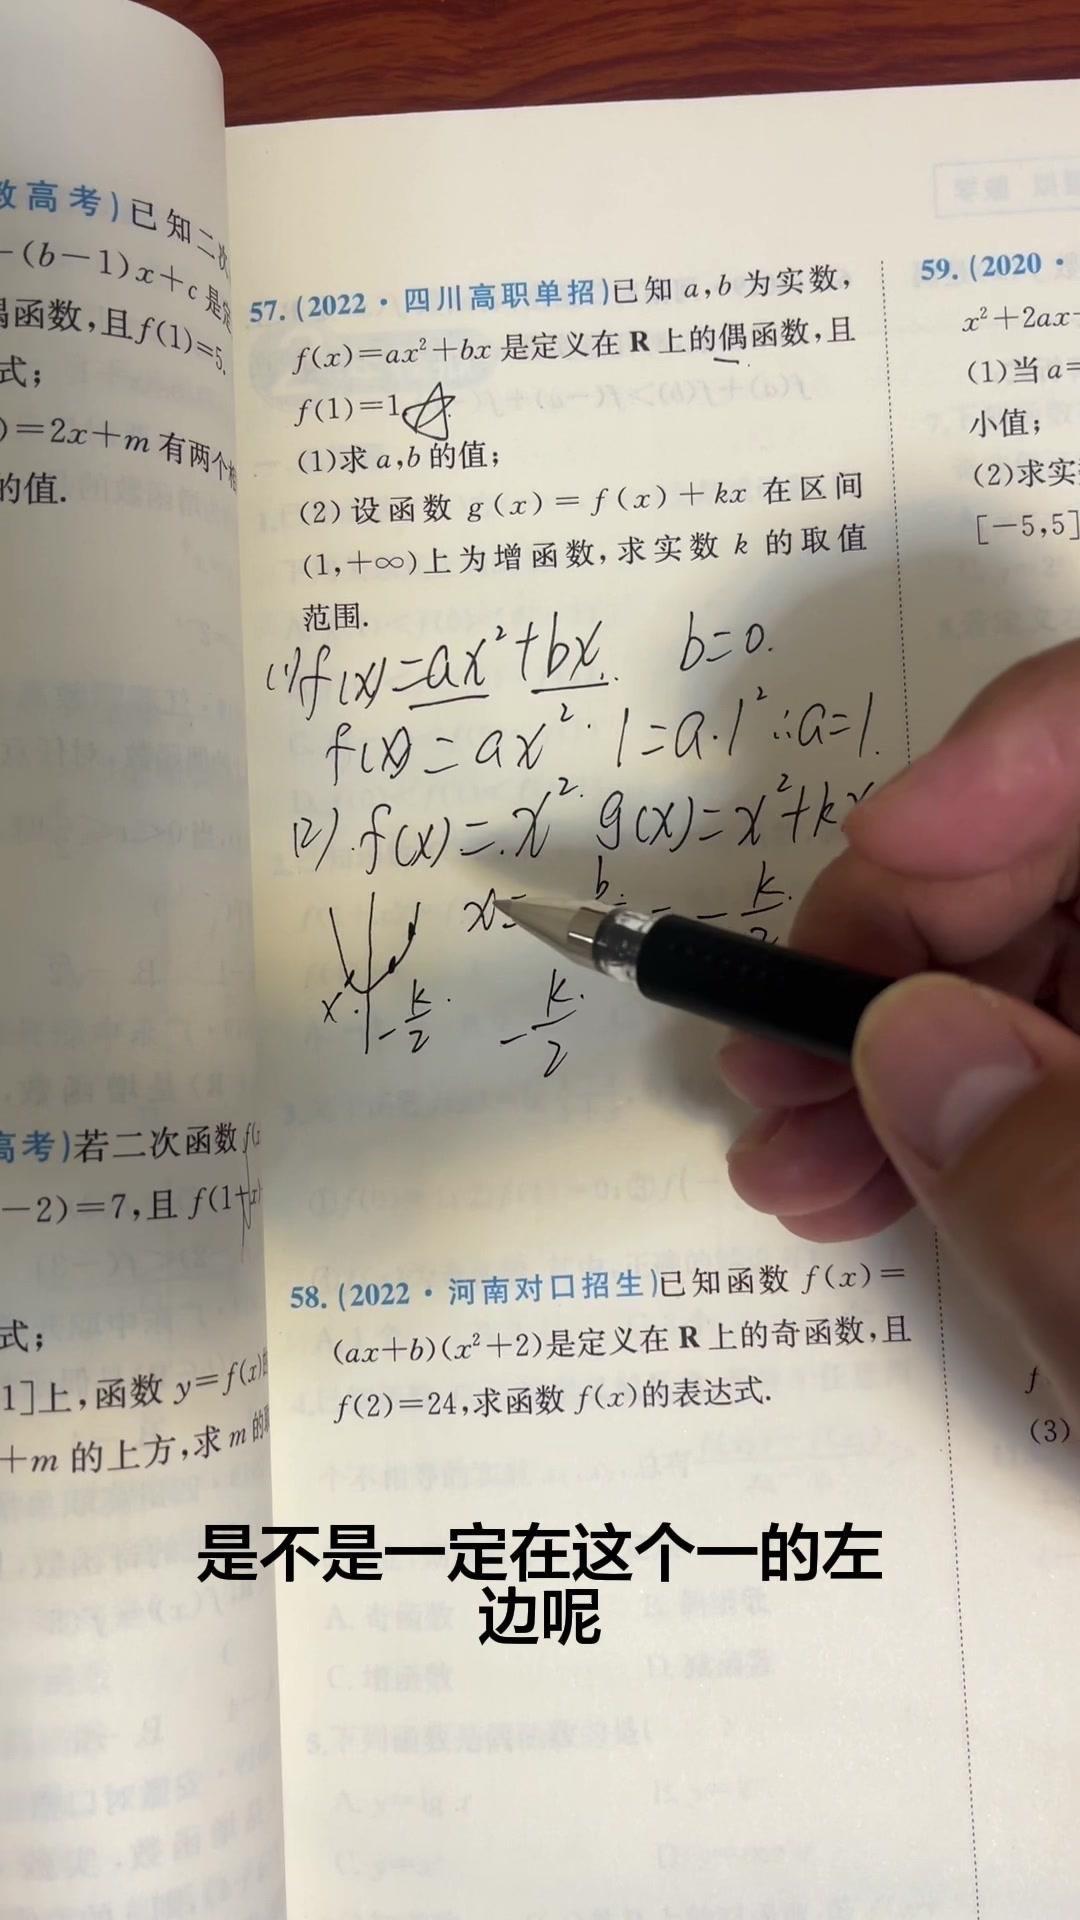 数高考)已知二次
-(b-1)x+c是定
偶函数,且f(1)=5.
式;
)=2x+m有两个相
的值.
高考)若二次函数f(x
-2)=7,且f(1+x)
式;
1]上,函数y=f(x)的
+m的上方,求m的取
57.(2022·四川高职单招)已知a,b为实数,
f(x)=ax²+bx是定义在R上的偶函数,且
f(1)=1.
(1)求a,b的值;
(2)设函数g(x)=f(x)+kx在区间
(1,+∞)上为增函数,求实数k的取值
范围.
(1)f(x)=ax²+bx. b=0.
f(x)=ax². 1=a·1² ∴a=1.
(2).f(x)=x². g(x)=x²+kx
x= b = -k/2
x. -k/2 -k/2
58.(2022·河南对口招生)已知函数f(x)=
(ax+b)(x²+2)是定义在R上的奇函数,且
f(2)=24,求函数f(x)的表达式.
59.(2020·
x²+2ax
(1)当a=
小值;
(2)求实
[-5,5]
f
(3)
是不是一定在这个一的左
边呢